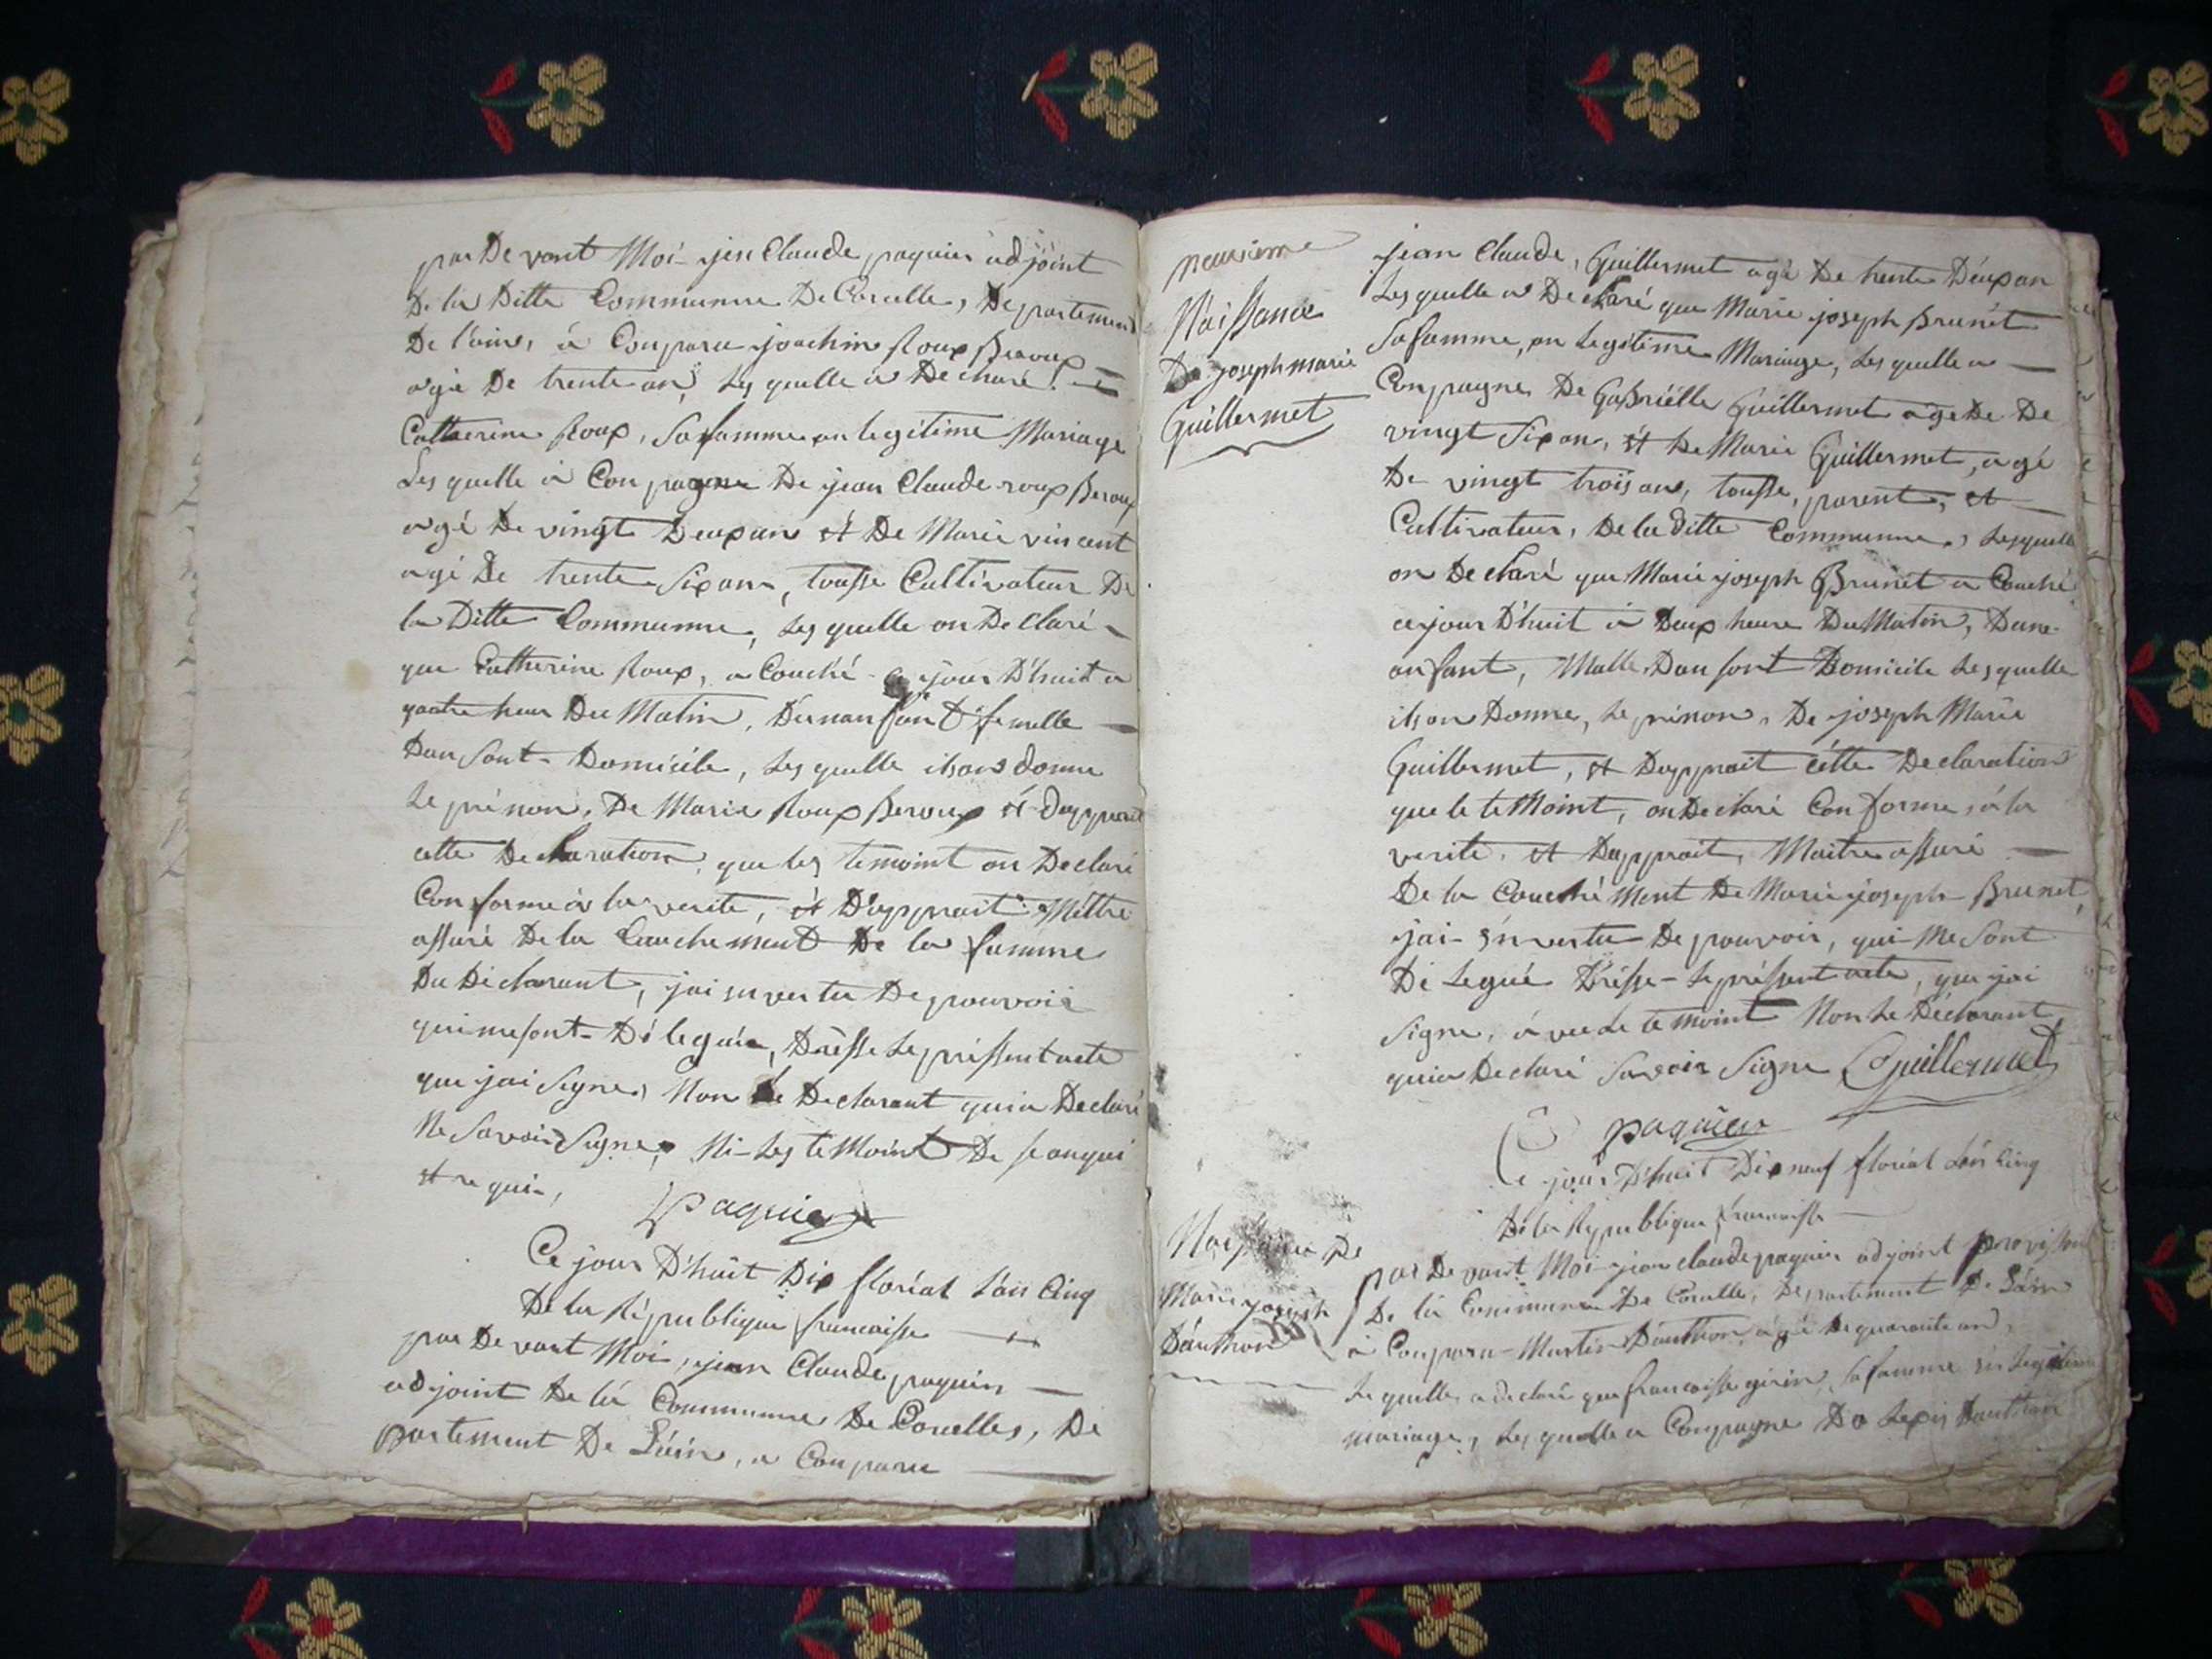 par De vant Moi jen Claude paquier adjoint
De la Ditte Communne De Corcelle, De partement
De l'ain, à Conparu joachim Roux Beroux
agé De trente an, Les quelle a De claré
Catherine Roux, Sa famme an legitime Mariage
Les quelle à Con pagne De jean Claude roux Beroux
agé De vingt Deux an et De Marie vincent
agé De trente Six an, tousse Cultivateur De
la Ditte Communne, Les quelle on De Claré
que Catherine Roux, a Couché ce jour D'huit a
quatre heur Du Matin, D'unanfant femelle
Dan Sont Domicile, Les quelle ils on donne
Le prénon, De Marie Roux Beroux et dapprait
cette De claration que les temoint on Declaré
Conforme à la verite, et D'apprait Mettre
assuré De la Couchement De la famme
Du Déclarant, jai en vertu De pouvoir
qui me sont Déleguée, Drésse Le préssent acte
que jai Signe, Non Le Declarant qui a Declaré
Ne Savoir Signe, Ni Les te Moint De se anquii
et re quie,
Paquier
Ce jour D'huit Dix floréal L'an Cinq
De la Républiquе francaisse
par De vant Moi, jean Claude paquier
adjoint De la Communne De Corcelles, De
partement De L'ain, a Conparu
neuvieme
Naissance
De joseph marie
Guillermet
jean Claude, Guillermet agé De trente Deux an
Les quelle a De claré que Marie joseph Brunet
Sa famme, an Legitime Mariage, Les quelle a
Conpagne De Gabriélle Guillermet age De De
vingt Six an, et De Marie Guillermet, agé
De vingt trois an, tousse, parent, et
Cultivateur, De la ditte Communne, Lesquelle
on De claré que Marie joseph Brunet a Couché
ce jour D'huit à Deux heure Du Matin, D'une
anfant, Malle Dan sont Domicile Les quelle
ils on Donne, Le prénon, De joseph Marie
Guillermet, et Dapprait cétte Declaration
que le te Moint, on De claré Con forme, à la
verite, et Dapprait, Maitre assuré
De la Couché Ment De Marie joseph Brunet,
jai én vertu De pouvoir, qui Me Sont
Dé Legué Drésse Le préssent acte, que jai
Signe, à vec Le te moint Non Le Déclarant
qui a Declaré Savoir Signe Guillermet
paquier
Ce jour D'huit Dix neuf floréal L'an Cinq
De la Republique francaisse
Naissance De
Marie joseph
Dauthon
par De vant Moi jean claude paquier adjoint
De la Communne De Corcelle, De partement De L'ain
à Conparu Martin Dauthon agé De quarante an,
Le quelle a declaré que francaisse girin, Sa famme én Legitime
mariage, Les quelle a Conpagne De Dauthon